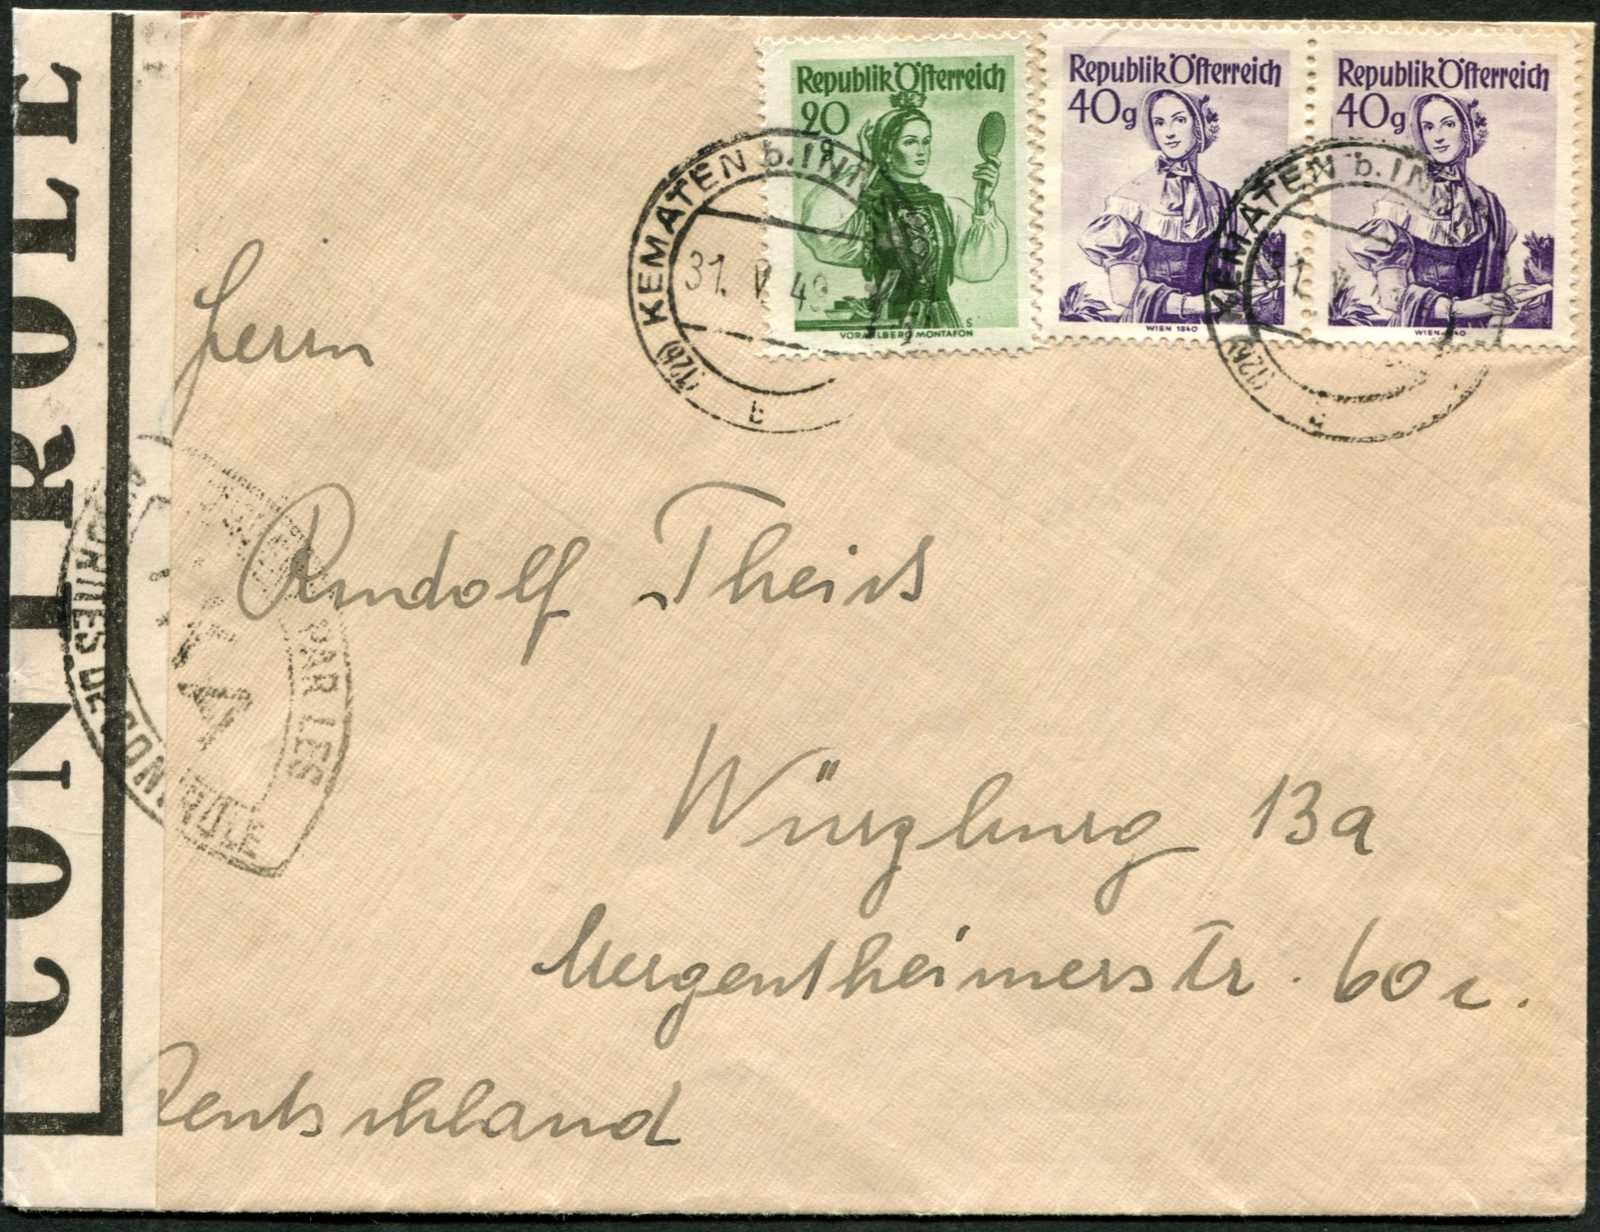 CONTROLE
Republik Österreich
20
g
VORARLBERG MONTAFON
Republik Österreich
40g
WIEN 1840
Republik Österreich
40g
WIEN 1840
KEMATEN b. INN
31. V 49
(12b)
b
KEMATEN b. INN
31.
(12b)
Herrn
Rudolf Theiss
Würzburg 13a
Mergentheimerstr. 60
Deutschland
PAR LES
AUTORITES DE CONTROLE